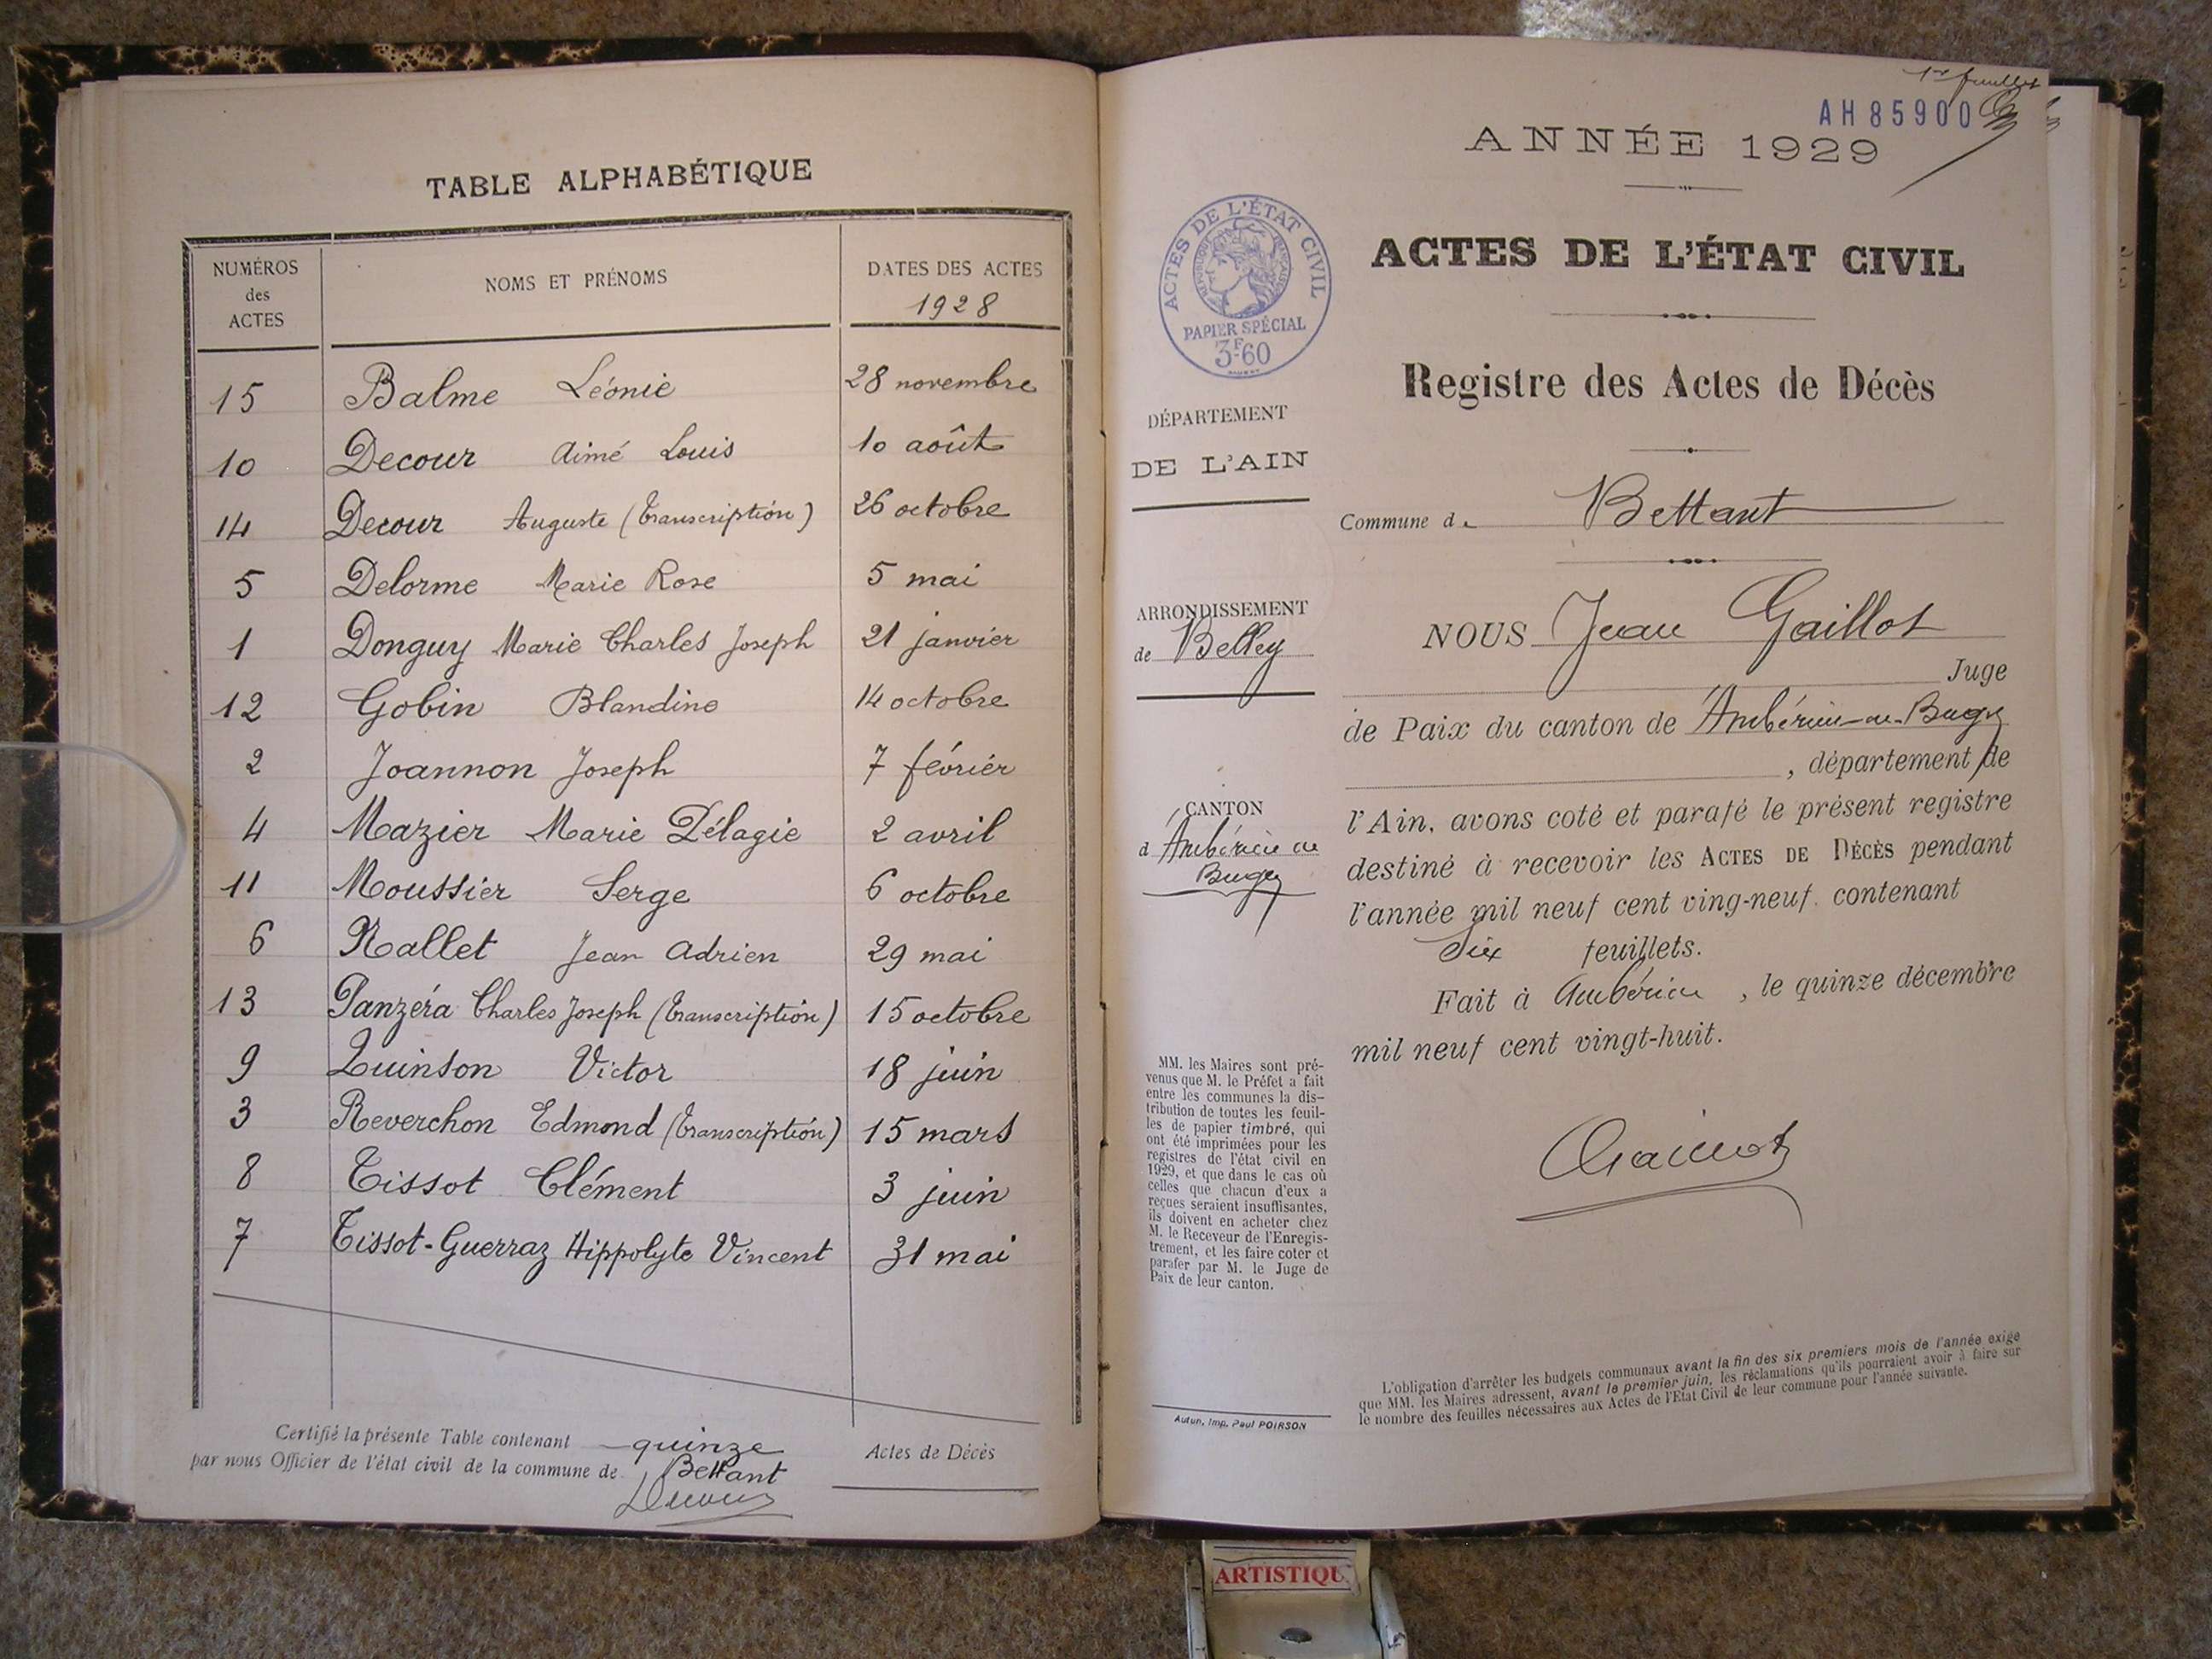 TABLE ALPHABÉTIQUE
NUMÉROS des ACTES
NOMS ET PRÉNOMS
DATES DES ACTES
1928
15 Balme Léonie 28 novembre
10 Decour Aimé Louis 10 août
14 Decour Auguste (Transcription) 26 octobre
5 Delorme Marie Rose 5 mai
1 Donguy Marie Charles Joseph 21 janvier
12 Gobin Blandine 14 octobre
2 Joannon Joseph 7 février
4 Mazier Marie Pélagie 2 avril
11 Moussier Serge 6 octobre
6 Nallet Jean Adrien 29 mai
13 Panzéra Charles Joseph (Transcription) 15 octobre
9 Quinson Victor 18 juin
3 Reverchon Edmond (Transcription) 15 mars
8 Tissot Clément 3 juin
7 Tissot-Guerraz Hippolyte Vincent 31 mai
Certifié la présente Table contenant quinze Actes de Décès
par nous Officier de l'état civil de la commune de Bettant
Decour
1er feuillet
AH85900
ANNÉE 1929
ACTES DE L'ÉTAT CIVIL
RÉPUBLIQUE FRANÇAISE
PAPIER SPÉCIAL
3F60
ACTES DE L'ÉTAT CIVIL
Registre des Actes de Décès
DÉPARTEMENT
DE L'AIN
Commune de Bettant
ARRONDISSEMENT
de Belley
NOUS Jean Gaillot
Juge
de Paix du canton de Ambérieu-en-Bugey
, département de
CANTON
d'Ambérieu en
Bugey
l'Ain, avons coté et parafé le présent registre
destiné à recevoir les ACTES DE DÉCÈS pendant
l'année mil neuf cent ving-neuf, contenant
Six feuillets.
Fait à Ambérieu, le quinze décembre
mil neuf cent vingt-huit.
Gaillot
MM. les Maires sont pré-
venus que M. le Préfet a fait
entre les communes la dis-
tribution de toutes les feuil-
les de papier timbré, qui
ont été imprimées pour les
registres de l'état civil en
1929, et que dans le cas où
celles que chacun d'eux a
reçues seraient insuffisantes,
ils doivent en acheter chez
M. le Receveur de l'Enregis-
trement, et les faire coter et
parafer par M. le Juge de
Paix de leur canton.
Autun, Imp. Paul POIRSON
L'obligation d'arrêter les budgets communaux avant la fin des six premiers mois de l'année exige
que MM. les Maires adressent, avant le premier juin, les réclamations qu'ils pourraient avoir à faire sur
le nombre des feuilles nécessaires aux Actes de l'Etat Civil de leur commune pour l'année suivante.
ARTISTIQU